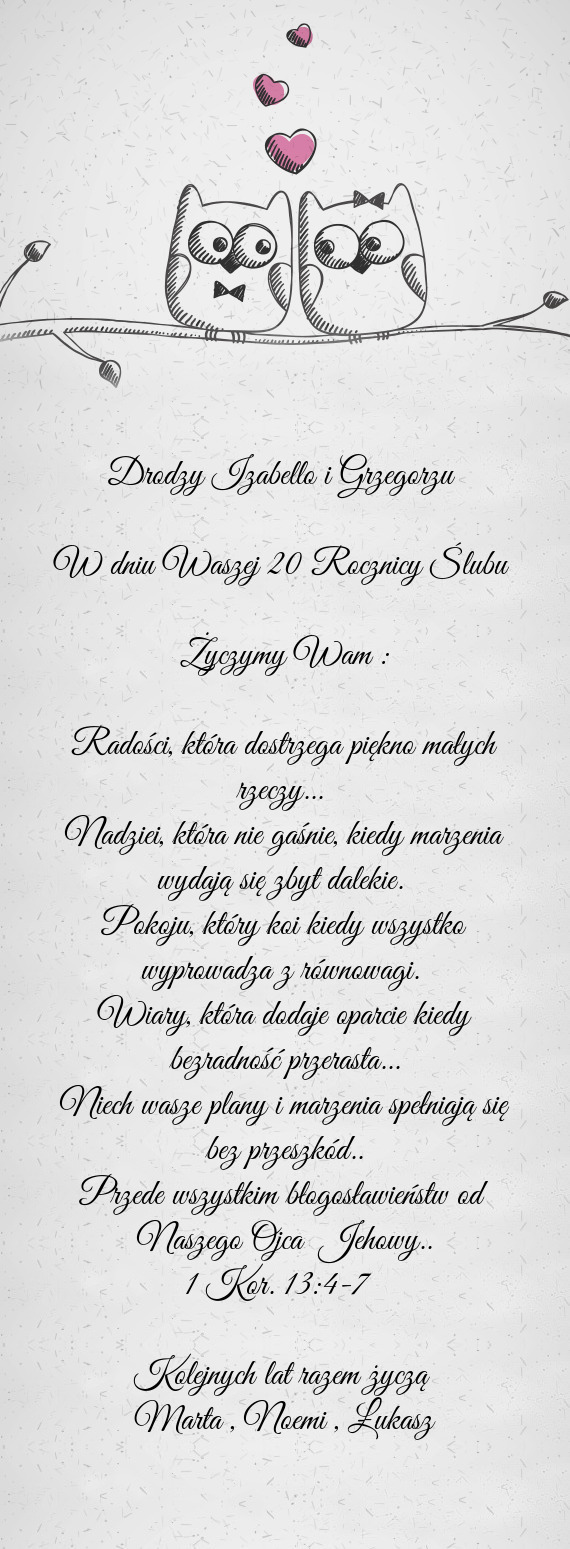 Drodzy Izabello i Grzegorzu
W dniu Waszej 20 Rocznicy Ślubu
Życzymy Wam :
Radości, która dostrzega piękno małych
rzeczy...
Nadziei, która nie gaśnie, kiedy marzenia
wydają się zbyt dalekie.
Pokoju, który koi kiedy wszystko
wyprowadza z równowagi.
Wiary, która dodaje oparcie kiedy
bezradność przerasta...
Niech wasze plany i marzenia spełniają się
bez przeszkód..
Przede wszystkim błogosławieństw od
Naszego Ojca Jehowy..
1 Kor. 13:4-7
Kolejnych lat razem życzą
Marta , Noemi , Łukasz